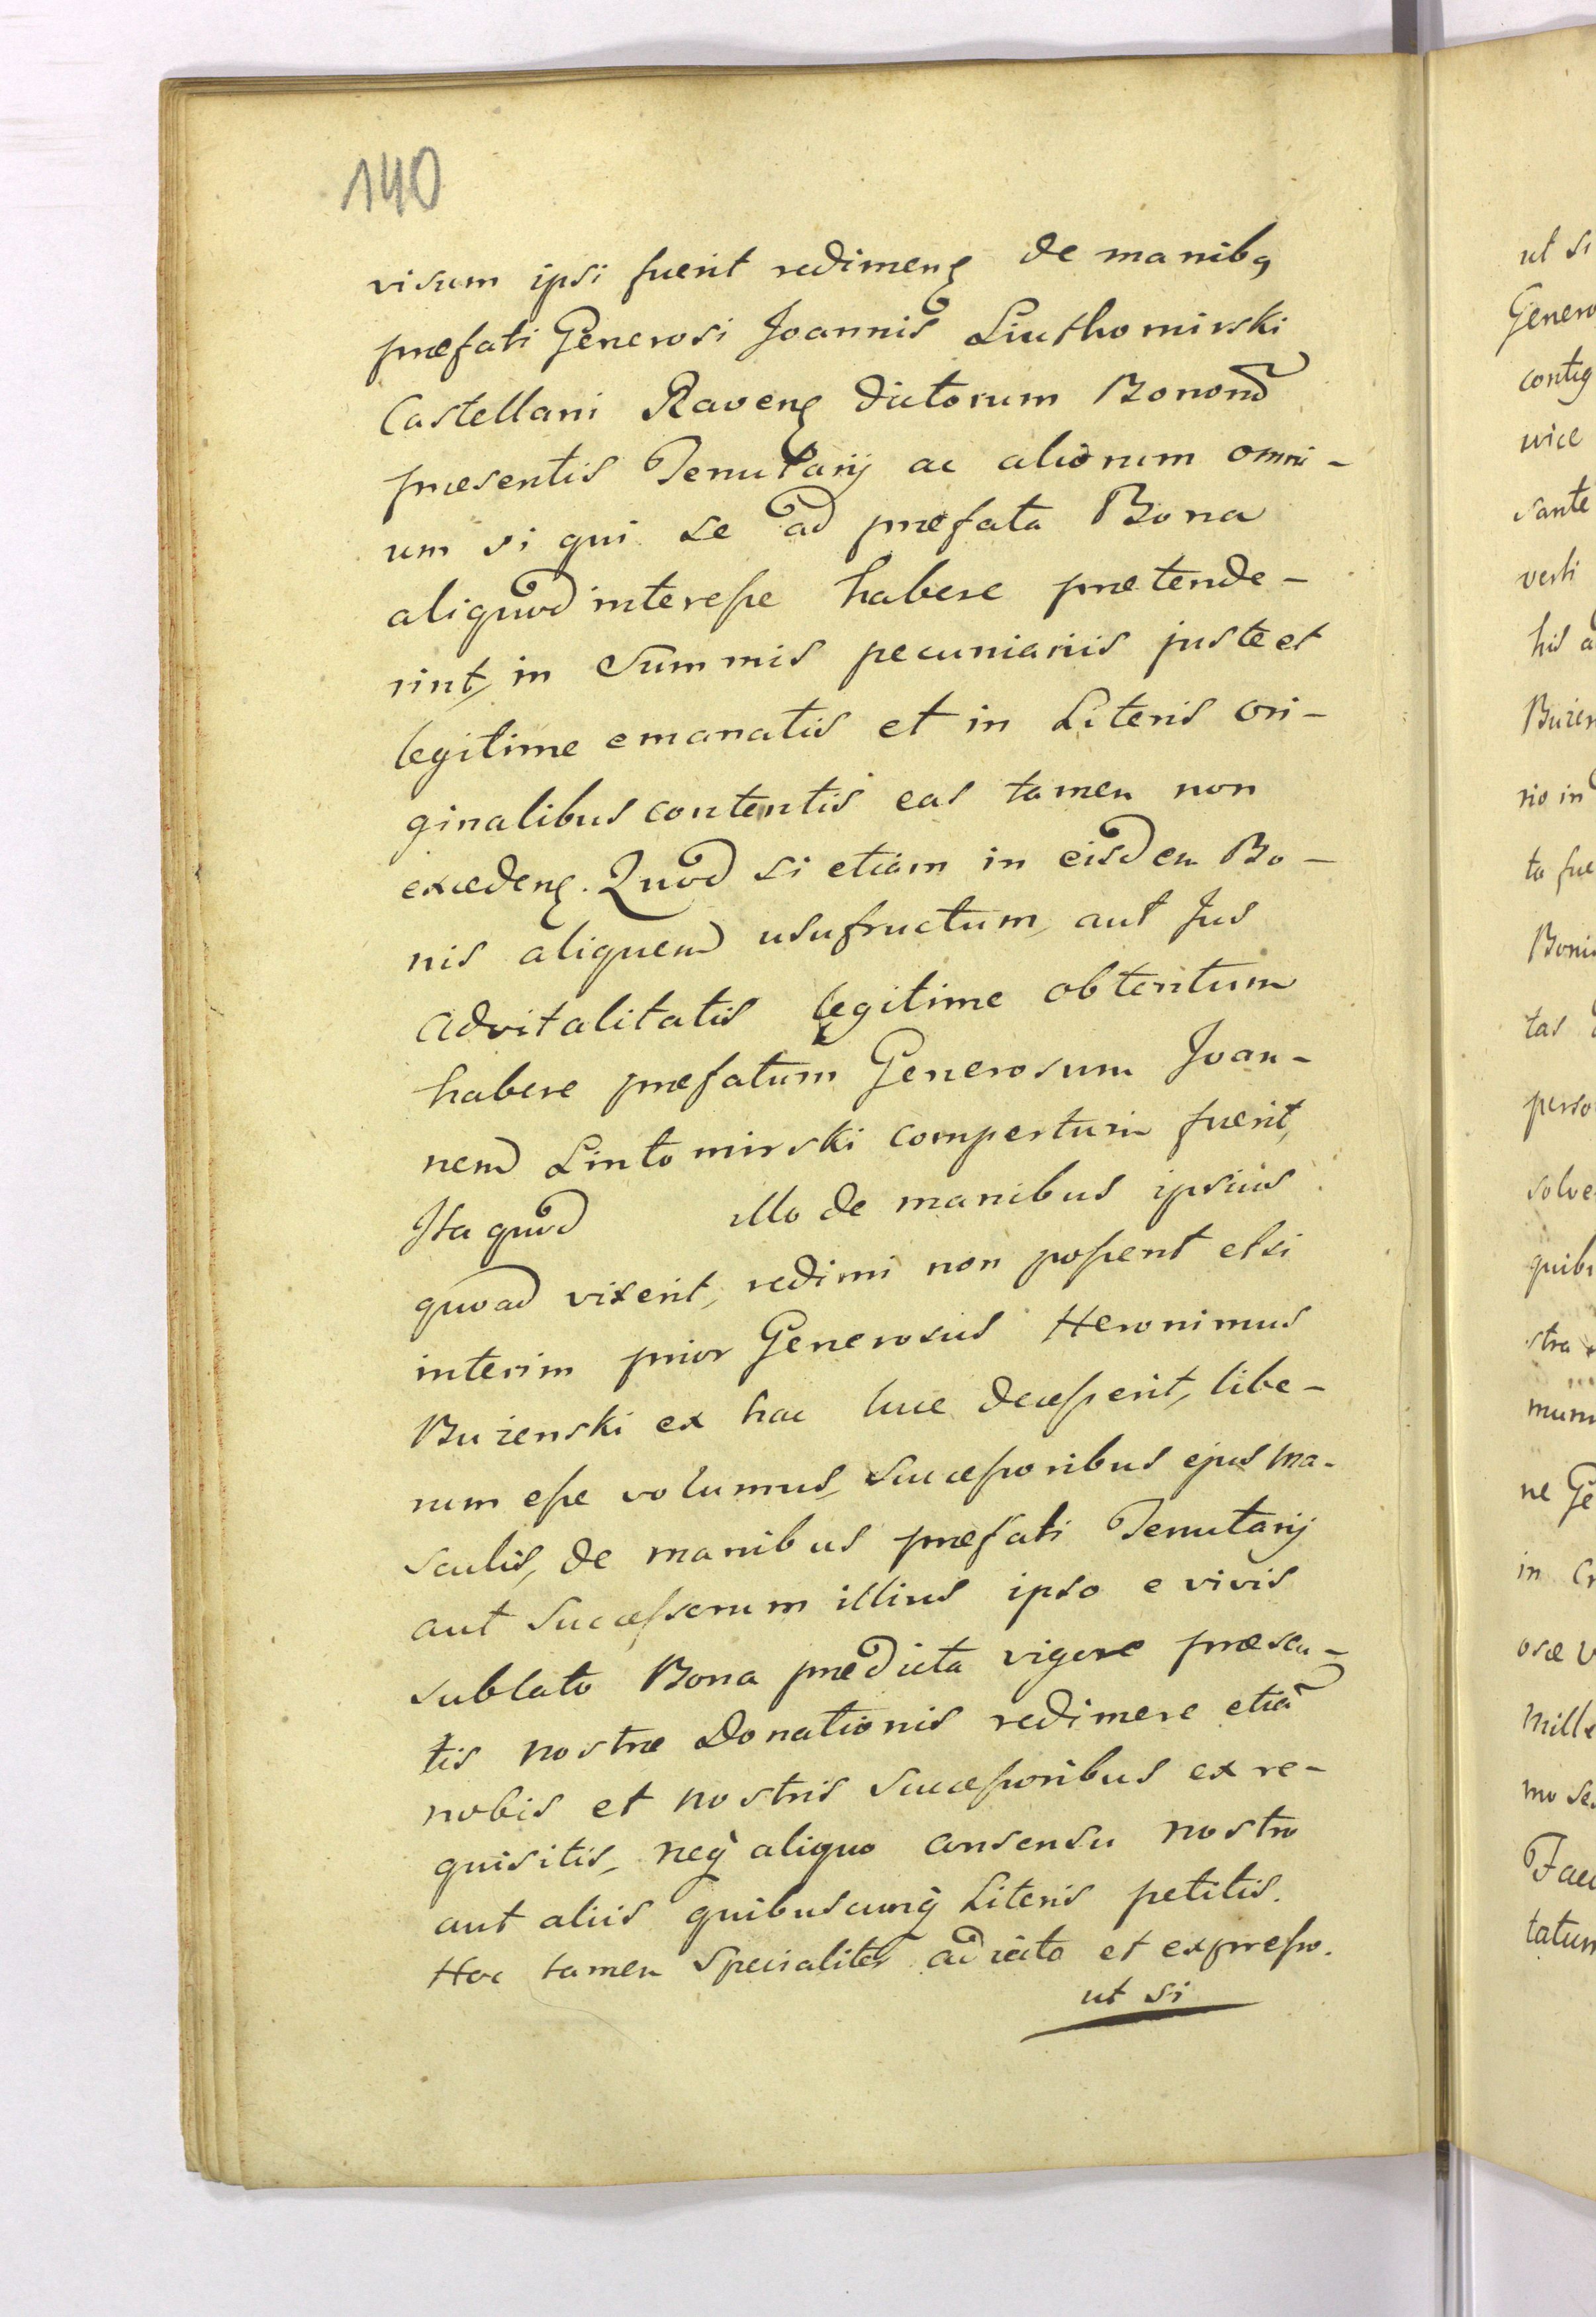 140
visum ipsi fuerit redimenʒ de manibꝫ
præfati Generosi Joannis Liuthomirski
Castellani Ravenʒ dictorum Bonorũ
præsentis Tenutarij ac aliorum omni-
um si qui se ad præfata Bona
aliquod interesse habere prætende-
rint, in Summis pecuniariis juste et
legitime emanatis et in Literis ori-
ginalibus contentis eas tamen non
excedenʒ. Quod si etiam in eisdem Bo-
nis aliquem usufructum, aut Jus
advitalitatis legitime obtentum
habere præfatum Generosum Joan-
nem Lintomirski compertum fuerit,
Ita quod illo de manibus ipsius
quoad vixerit, redimi non possent etsi
interim prior Generosus Heronimus
Buzenski ex hac luce decesserit, libe-
rum esse volumus, Successoribus ejus ma-
sculis, de manibus præfati Tenutarij
aut Successorum illius ipso e vivis
sublato Bona prædicta vigore præsen-
tis nostræ Donationis redimere etiã
nobis et nostris Successoribus ex re-
quisitis, neq̀ aliquo consensu nostro
aut aliis quibuscunq̀ Literis petitis.
Hoc tamen specialiter adiecto et expresso.
ut si
ut si
Genero
contig
vice
sante
verti
his a
Buzen
rio in
ta fue
Boni
tas
perso
solve
quibu
stra
mum
ne Ge
in Cr
osæ V
mille
mo Se
Fac
tatum